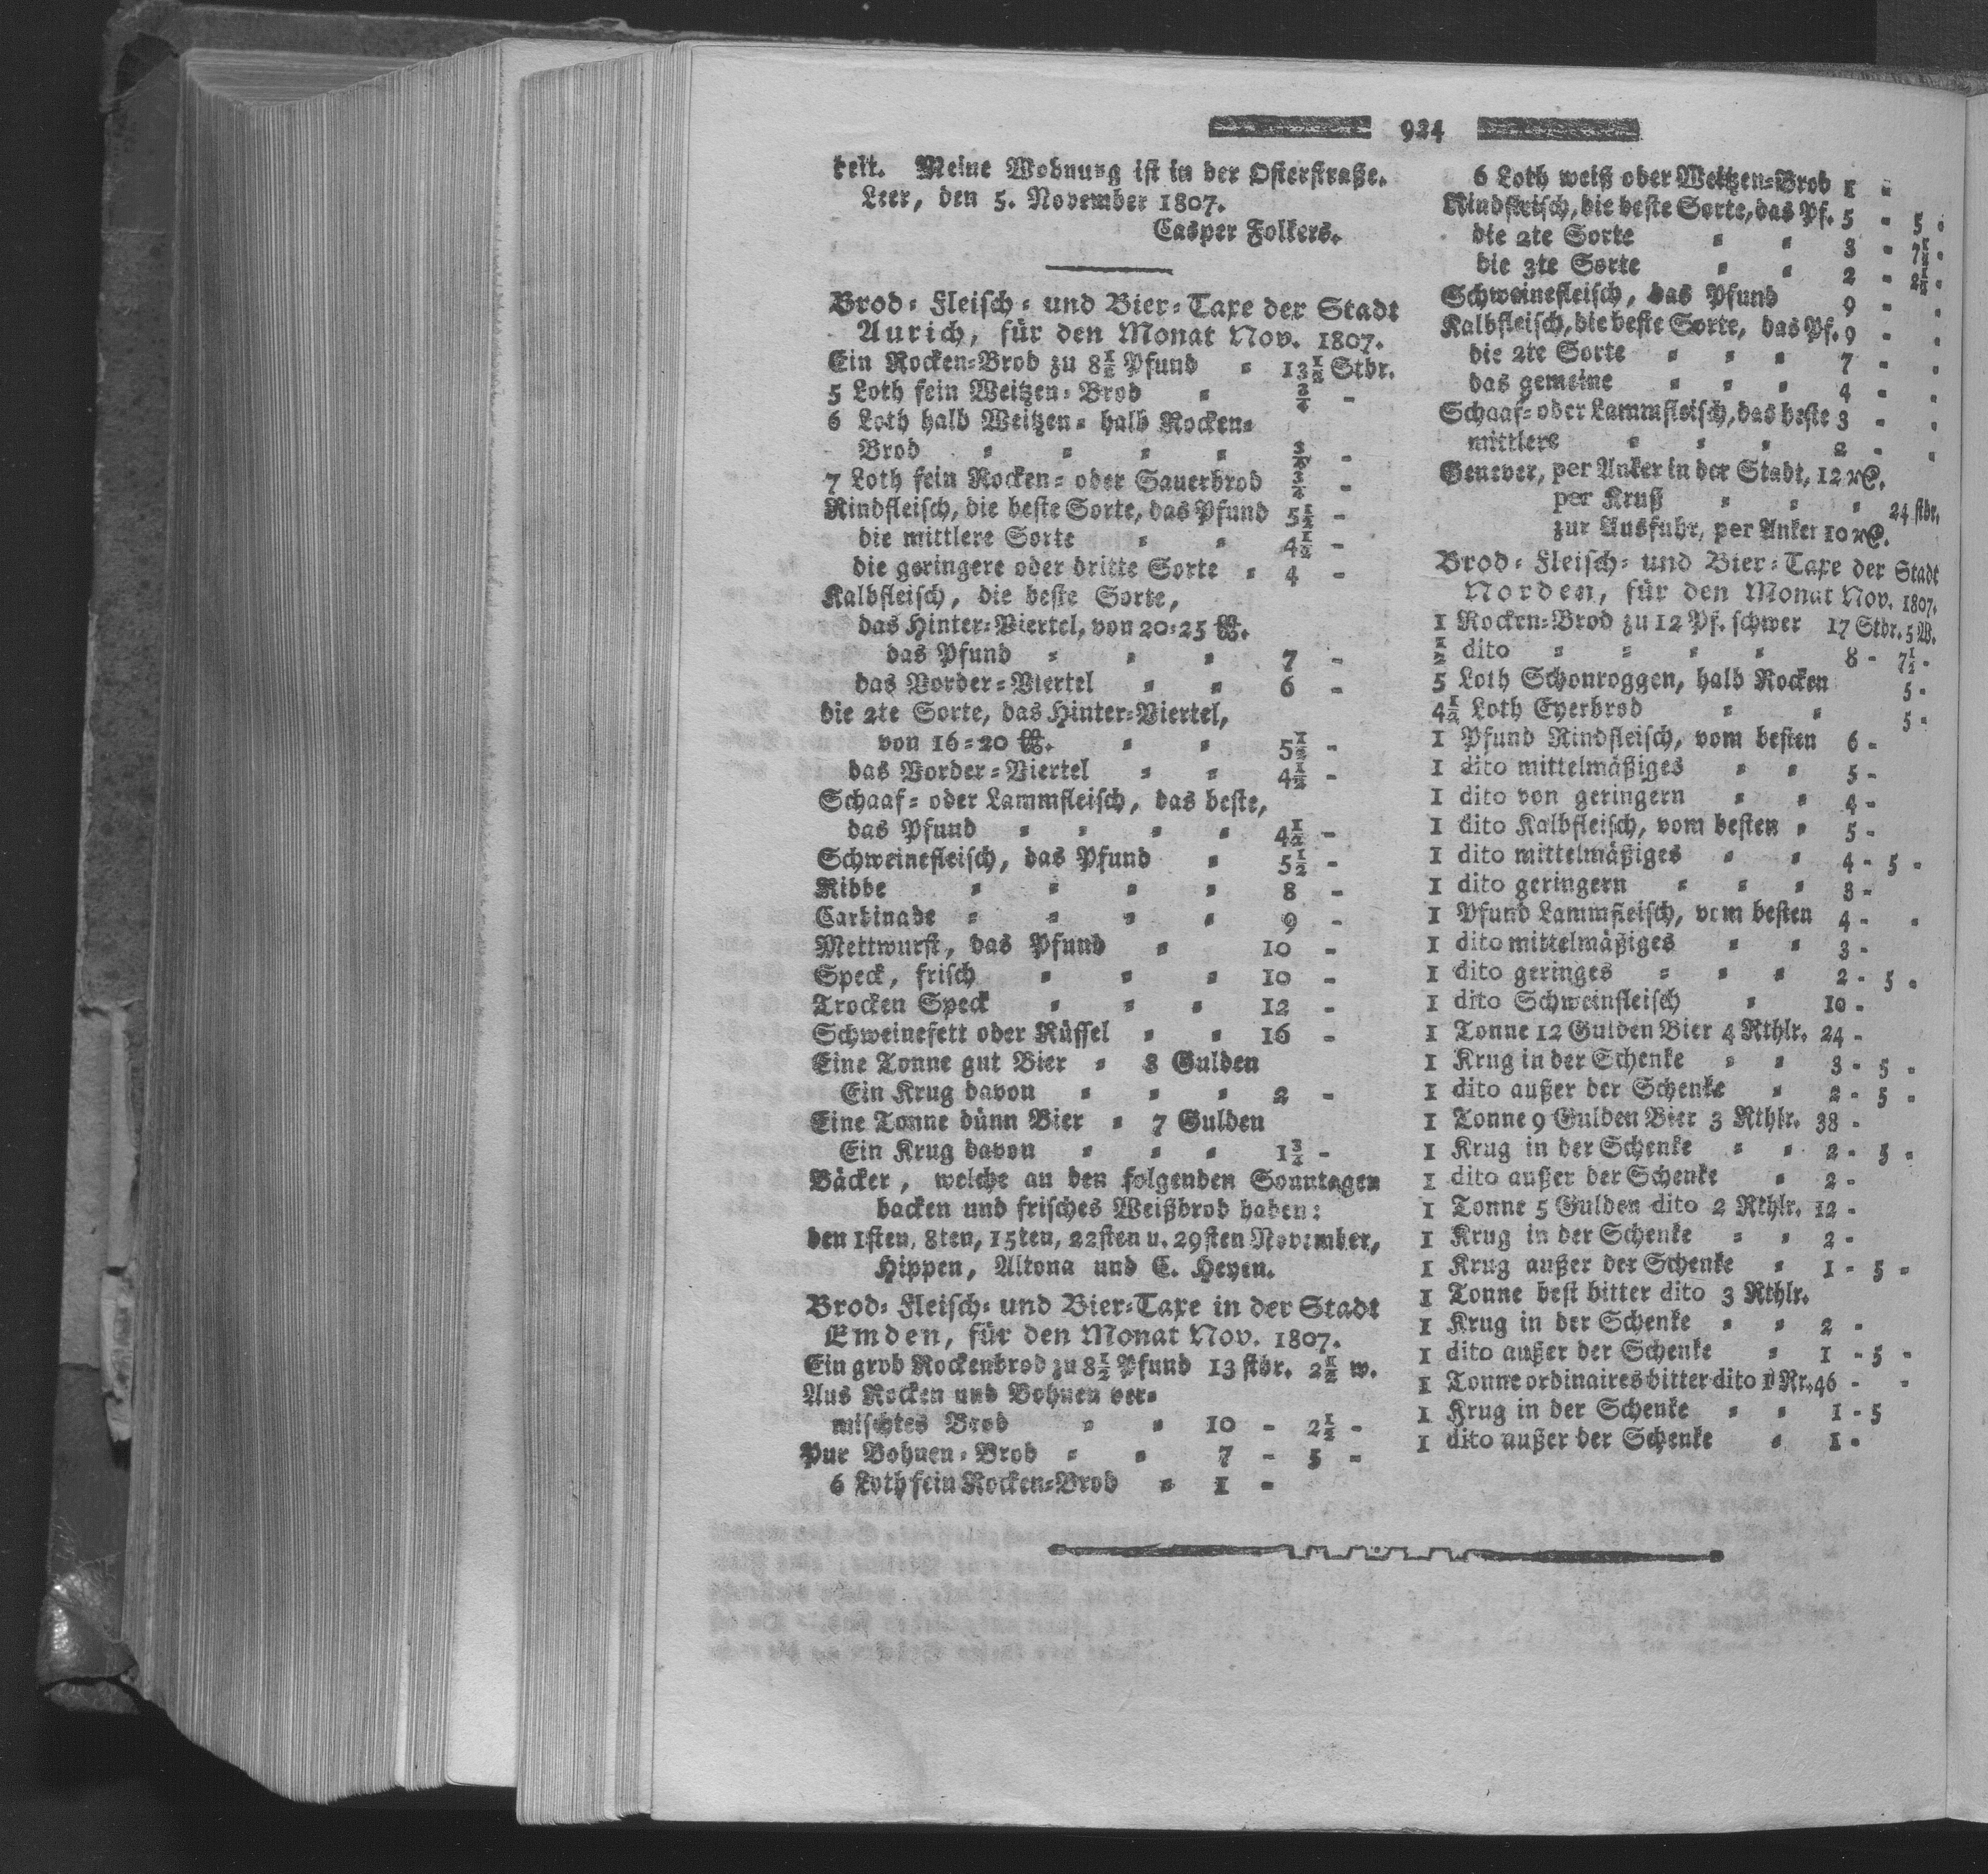 924
telt. Meine Wohnung ist in der Osterstraße.
Leer, den 5. November 1807.
Casper Folkers.
Brod- Fleisch- und Bier-Taxe der Stadt
Aurich, für den Monat Nov. 1807.
Ein Rocken-Brod zu 8½ Pfund = 13½ Stbr.
5 Loth fein Weitzen-Brod = ¾ -
6 Loth halb Weitzen- halb Rocken-
Brod = = = = ¾ -
7 Loth fein Rocken- oder Sauerbrod ¾ -
Rindfleisch, die beste Sorte, das Pfund 5½ -
die mittlere Sorte = = 4½ -
die geringere oder dritte Sorte = 4 -
Kalbfleisch, die beste Sorte,
das Hinter-Viertel, von 20-25 ℔.
das Pfund = = = 7 -
das Vorder-Viertel = = 6 -
die 2te Sorte, das Hinter-Viertel,
von 16-20 ℔. = = 5½ -
das Vorder-Viertel = = 4½ -
Schaaf- oder Lammfleisch, das beste,
das Pfund = = = = 4½ -
Schweinefleisch, das Pfund = 5½ -
Ribbe = = = = 8 -
Carbinade = = = = 9 -
Mettwurst, das Pfund = 10 -
Speck, frisch = = = 10 -
Trocken Speck = = = 12 -
Schweinefett oder Rüssel = = 16 -
Eine Tonne gut Bier = 8 Gulden
Ein Krug davon = = = 2 -
Eine Tonne dünn Bier = 7 Gulden
Ein Krug davon = = = 1¾ -
Bäcker, welche an den folgenden Sonntagen
backen und frisches Weißbrod haben:
den 1sten, 8ten, 15ten, 22sten u. 29sten November,
Hippen, Altona und C. Heyen.
Brod- Fleisch- und Bier-Taxe in der Stadt
Emden, für den Monat Nov. 1807.
Ein grob Rockenbrod zu 8½ Pfund 13 stbr. 2½ w.
Aus Rocken und Bohnen ver-
mischtes Brod = = 10 - 2½ -
Pur Bohnen-Brod = = 7 - 5 -
6 Loth fein Rocken-Brod = 1 -
6 Loth weiß oder Weitzen-Brod 1 -
Rindfleisch, die beste Sorte, das Pf. 5 - 5 -
die 2te Sorte = = 3 - 7½ -
die 3te Sorte = = 2 - 2½ -
Schweinefleisch, das Pfund 9 - -
Kalbfleisch, die beste Sorte, das Pf. 9 - -
die 2te Sorte = = = 7 - -
das gemeine = = = 4 - -
Schaaf- oder Lammfleisch, das beste 3 - -
mittlere = = = 2 - -
Genever, per Anker in der Stadt, 12 Rl.
per Kruß = = = 24 stbr.
zur Ausfuhr, per Anker 10 Rl.
Brod- Fleisch- und Bier-Taxe der Stadt
Norden, für den Monat Nov. 1807.
1 Rocken-Brod zu 12 Pf. schwer 17 Stbr. 5 W.
½ dito = = = = 8 - 7½ -
5 Loth Schonroggen, halb Rocken 5 -
4½ Loth Eyerbrod = = 5 -
1 Pfund Rindfleisch, vom besten 6 -
1 dito mittelmäßiges = = 5 -
1 dito von geringern = = 4 -
1 dito Kalbfleisch, vom besten = 5 -
1 dito mittelmäßiges = = 4 - 5 -
1 dito geringern = = = 3 -
1 Pfund Lammfleisch, vom besten 4 - -
1 dito mittelmäßiges = = 3 -
1 dito geringes = = = 2 - 5 -
1 dito Schweinfleisch = 10 -
1 Tonne 12 Gulden Bier 4 Rthlr. 24 -
1 Krug in der Schenke = = 3 - 5 -
1 dito außer der Schenke = 2 - 5 -
1 Tonne 9 Gulden Bier 3 Rthlr. 38 -
1 Krug in der Schenke = = 2 - 5 -
1 dito außer der Schenke = 2 -
1 Tonne 5 Gulden dito 2 Rthlr. 12 -
1 Krug in der Schenke = = 2 -
1 Krug außer der Schenke = 1 - 5 -
1 Tonne best bitter dito 3 Rthlr.
1 Krug in der Schenke = = 2 -
1 dito außer der Schenke = 1 - 5 -
1 Tonne ordinaires bitter dito 1 Rr. 46 - -
1 Krug in der Schenke = = 1 - 5
1 dito außer der Schenke = 1 -